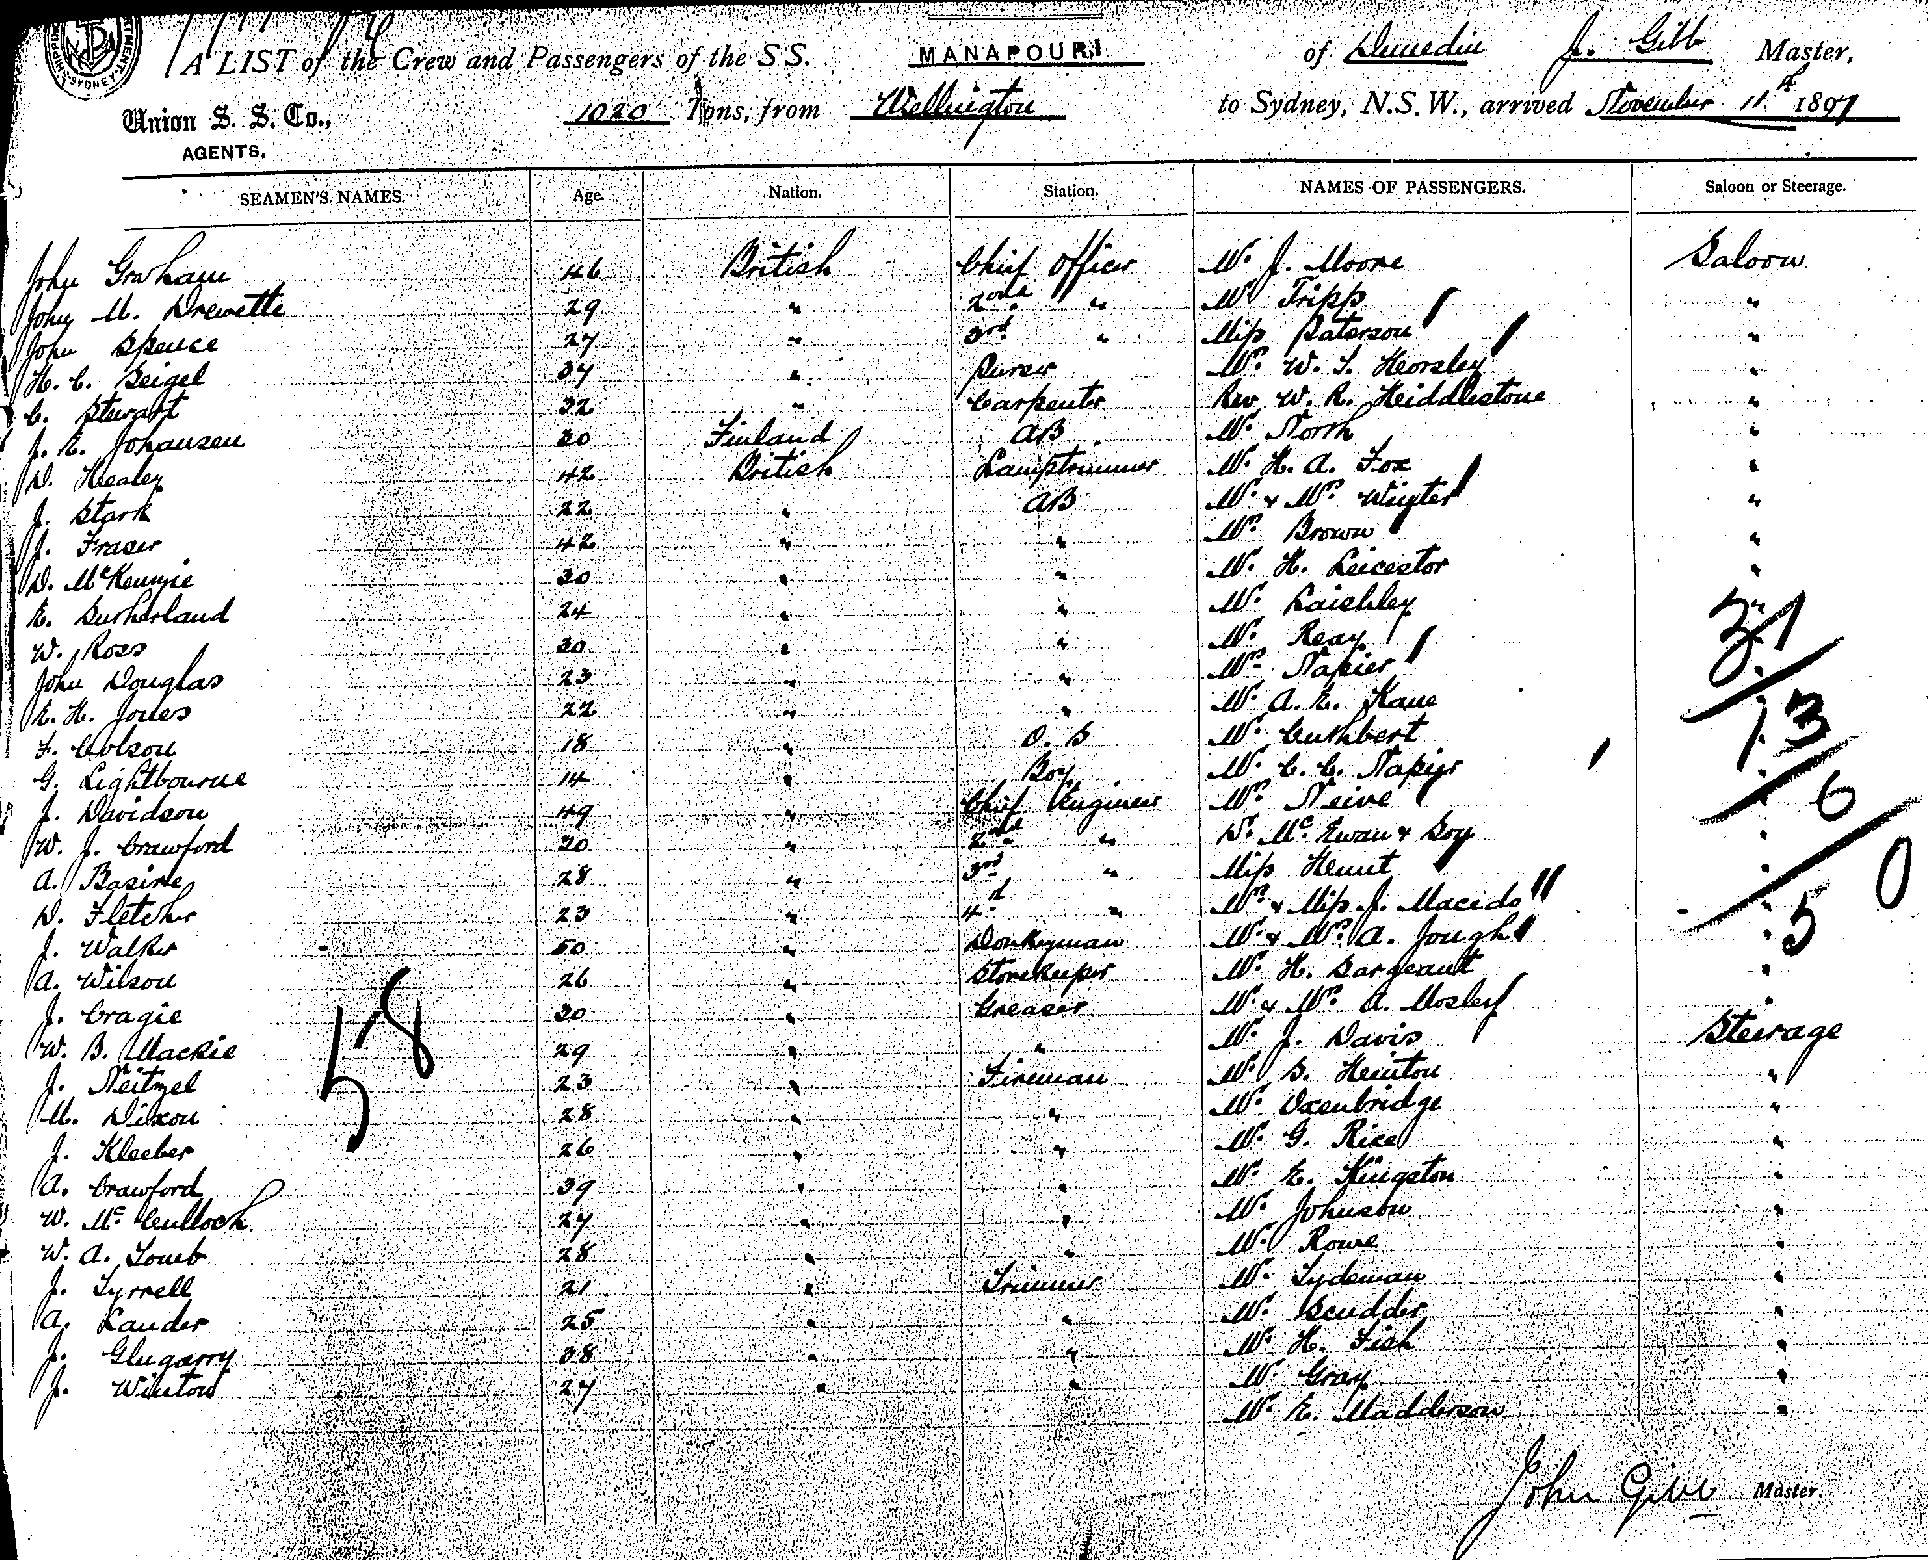 A LIST of the Crew and Passengers of the S.S. MANAPOURI of Dunedin J. Gibb Master,
Union S. S. Co., 1020 Tons, from Wellington to Sydney, N.S.W., arrived November 11th 1897
AGENTS.
SEAMEN'S NAMES. Age. Nation. Station. NAMES OF PASSENGERS. Saloon or Steerage.
John Graham 46 British Chief Officer Mr. J. Moore Saloon
John M. Drewette 29 " 2nd " Mr Tripp "
John Spence 27 " 3rd " Miss Paterson "
H. C. Beigel 37 " Purser Mr. W. T. Horsley "
C. Stewart 32 " Carpenter Rev W. R. Hiddlestone "
J. E. Johansen 30 Finland AB Mr. North "
D. Healey 42 British Lamptrimmer Mr. H. A. Fox "
J. Stark 22 " AB Mr. & Mrs. "
J. Fraser 42 " " Mrs. Brown "
D. McKenzie 30 " " Mr. H. Leicestor "
E. Sutherland 24 " " Mr. Laishley "
W. Ross 30 " " Mr. Reay
John Douglas 23 " " Mrs. Napier
E. H. Jones 22 " " Mr. A. E. Kane
F. Colson 18 " O. S Mr. Cuthbert
G. Lightbourne 14 " Boy Mr. C. C. Napier
J. Davidson 49 " Chief Engineer Mrs. Neive
W. J. Crawford 30 " 2nd " Dr. McEwan & Boy
A. Basire 28 " 3rd " Miss
D. Fletcher 23 " 4th " Mrs. & Miss J. Macido
J. Walker 50 " Donkeyman Mr. & Mrs. A. Jough
A. Wilson 26 " Storekeeper Mr. H. Sargeant "
J. Cragie 30 " Greaser Mr. & Mrs. A. Mosley "
W. B. Mackie 29 " " Mr. J. Davis Steerage
J. Neitzel 23 " Fireman Mr. S. Hinton "
M. Dixon 28 " " Mr. Oxenbridge "
J. Kleeber 26 " " Mr. G. Rice "
A. Crawford 39 " " Mr. E. Kingston "
W. McCulloch 27 " " Mr. Johnson "
W. A. Tomb 28 " " Mr. Rowe "
J. Tyrrell 21 " Trimmer Mr. Lydeman "
A. Lander 25 " " Mr. Scudder "
J. Glugarry 38 " " Mr. H. Fish "
J. Winton 27 " " Mr. Gray "
Mr. E. Madderson "
31
13
6
50
58
John Gibb Master.